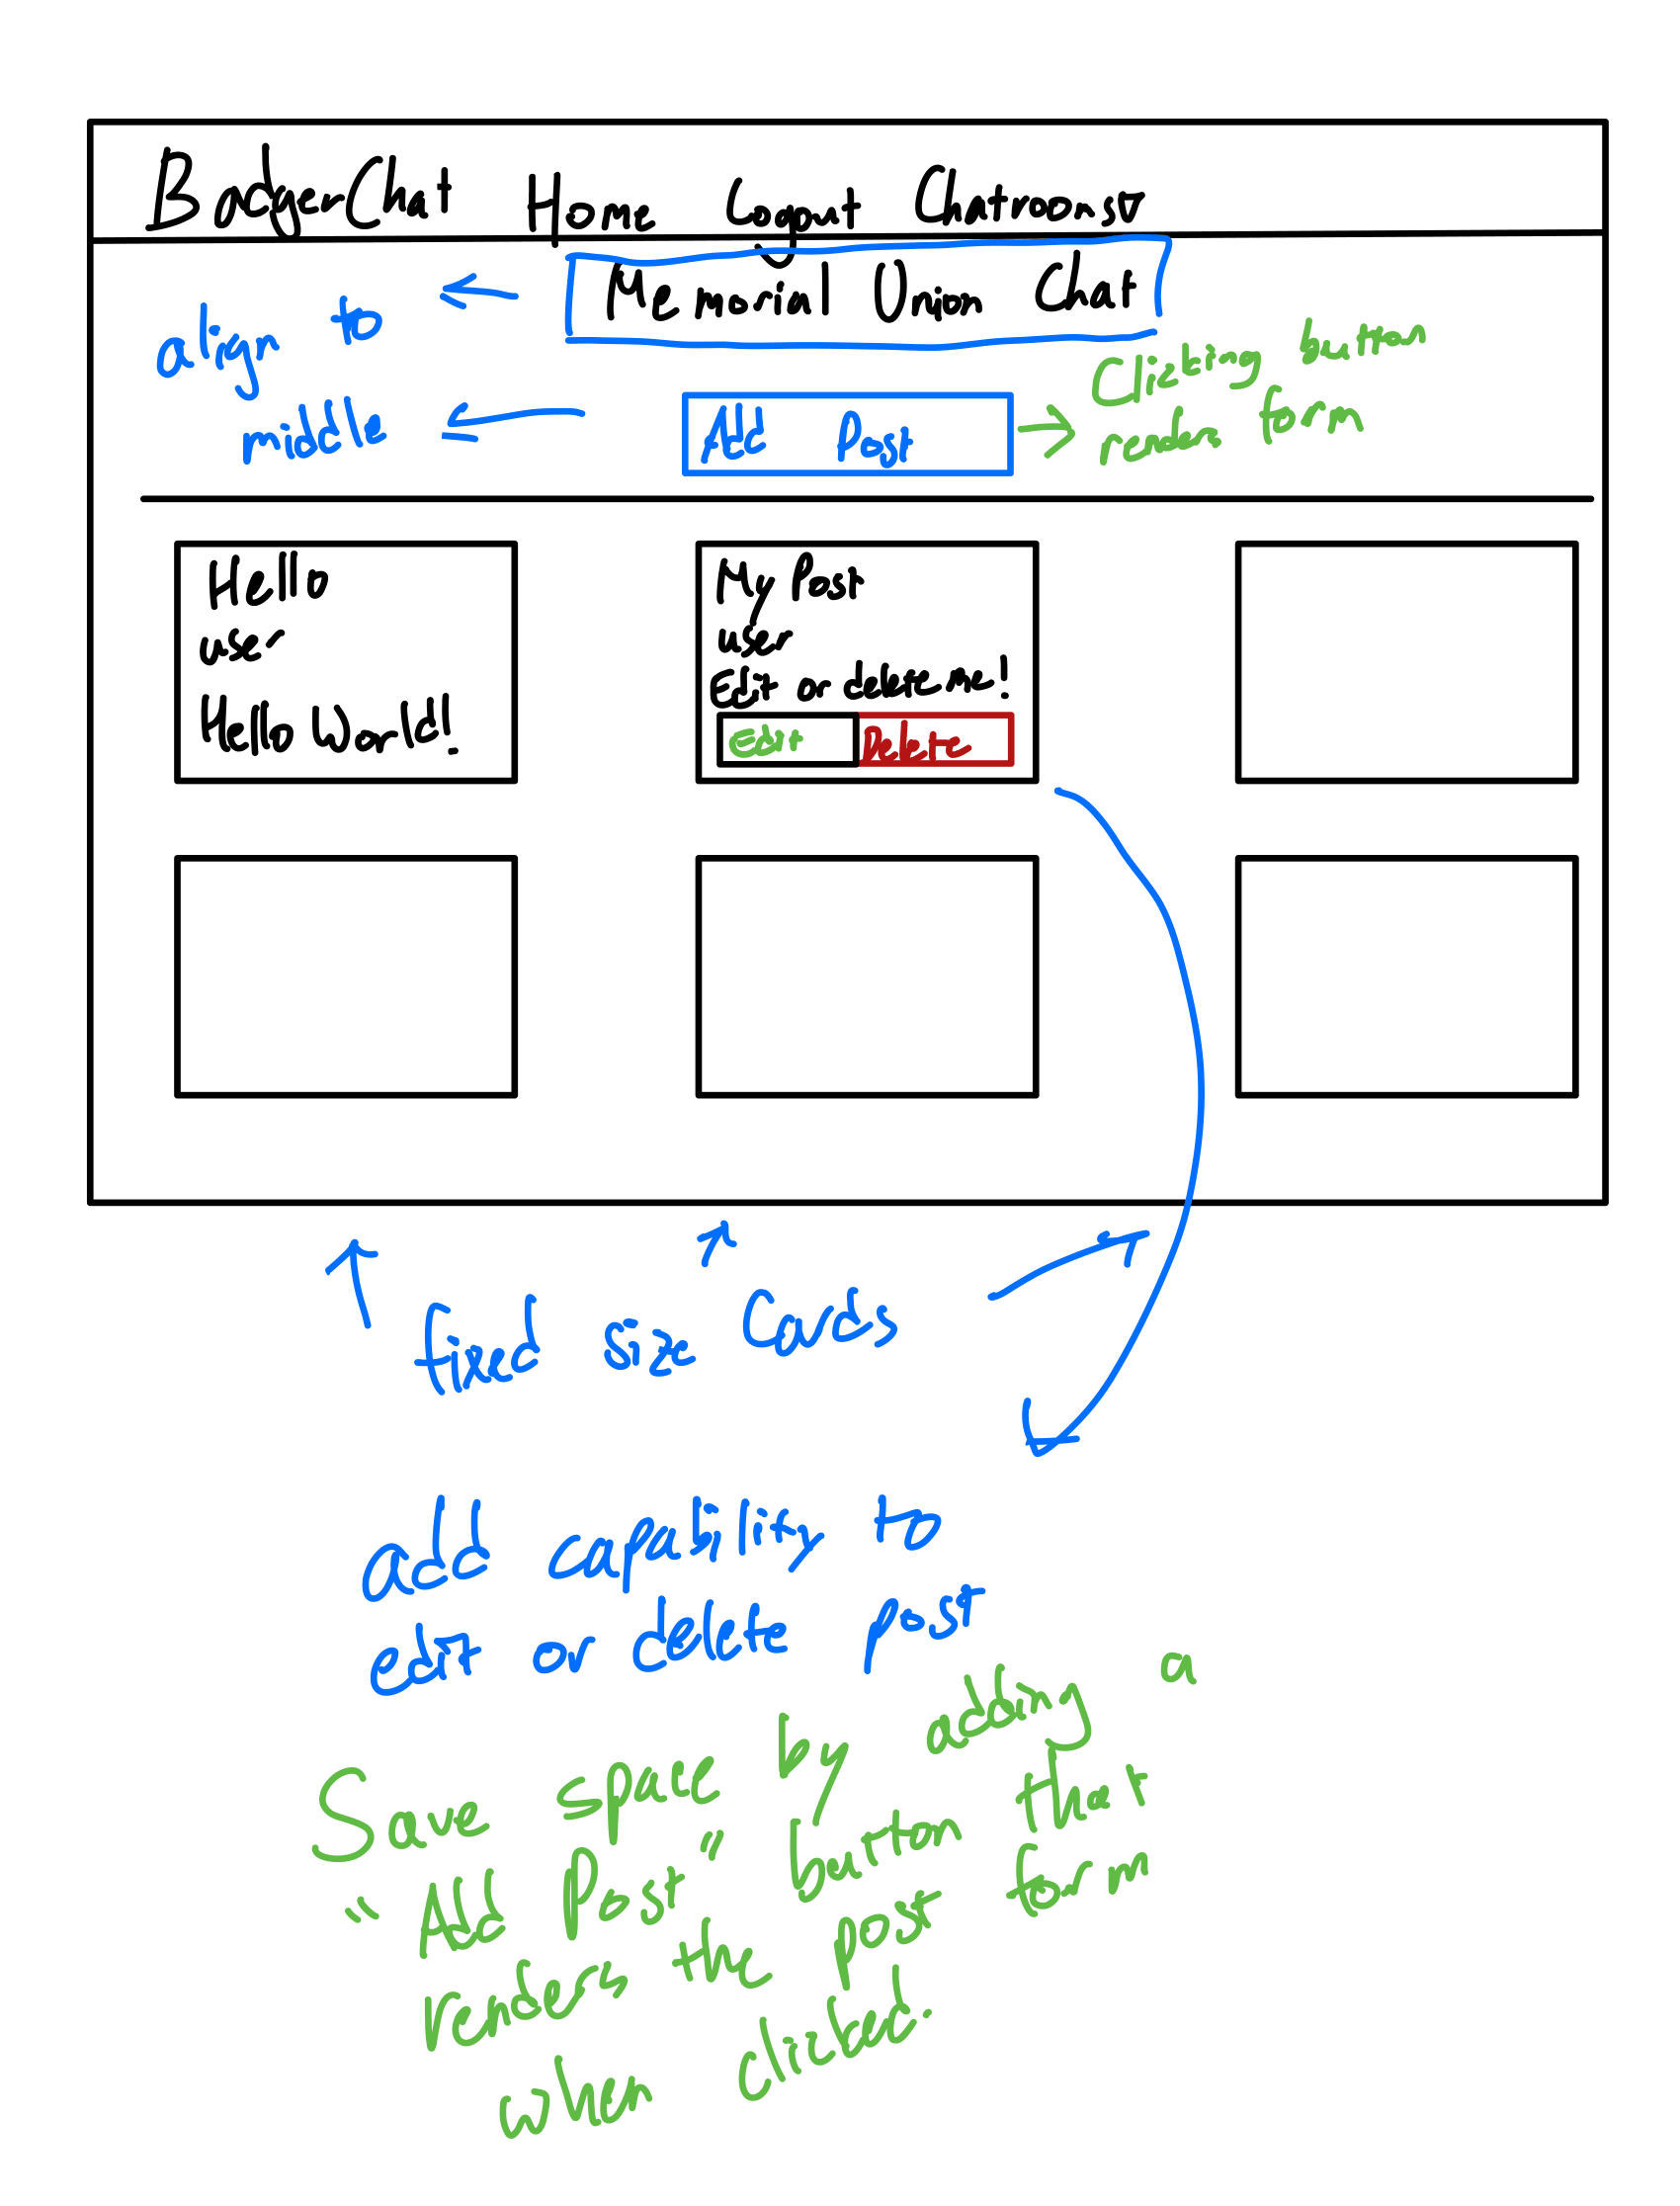 BadgerChat Home Logout Chatrooms
Memorial Union Chat
align to
middle
Add Post
Clicking button
render form
Hello
user
Hello World!
My Post
user
Edit or delete me!
Edit Delete
fixed size Cards
add capability to
edit or delete post
Save space by adding a
"Add Post" button that
renders the post form
when clicked.